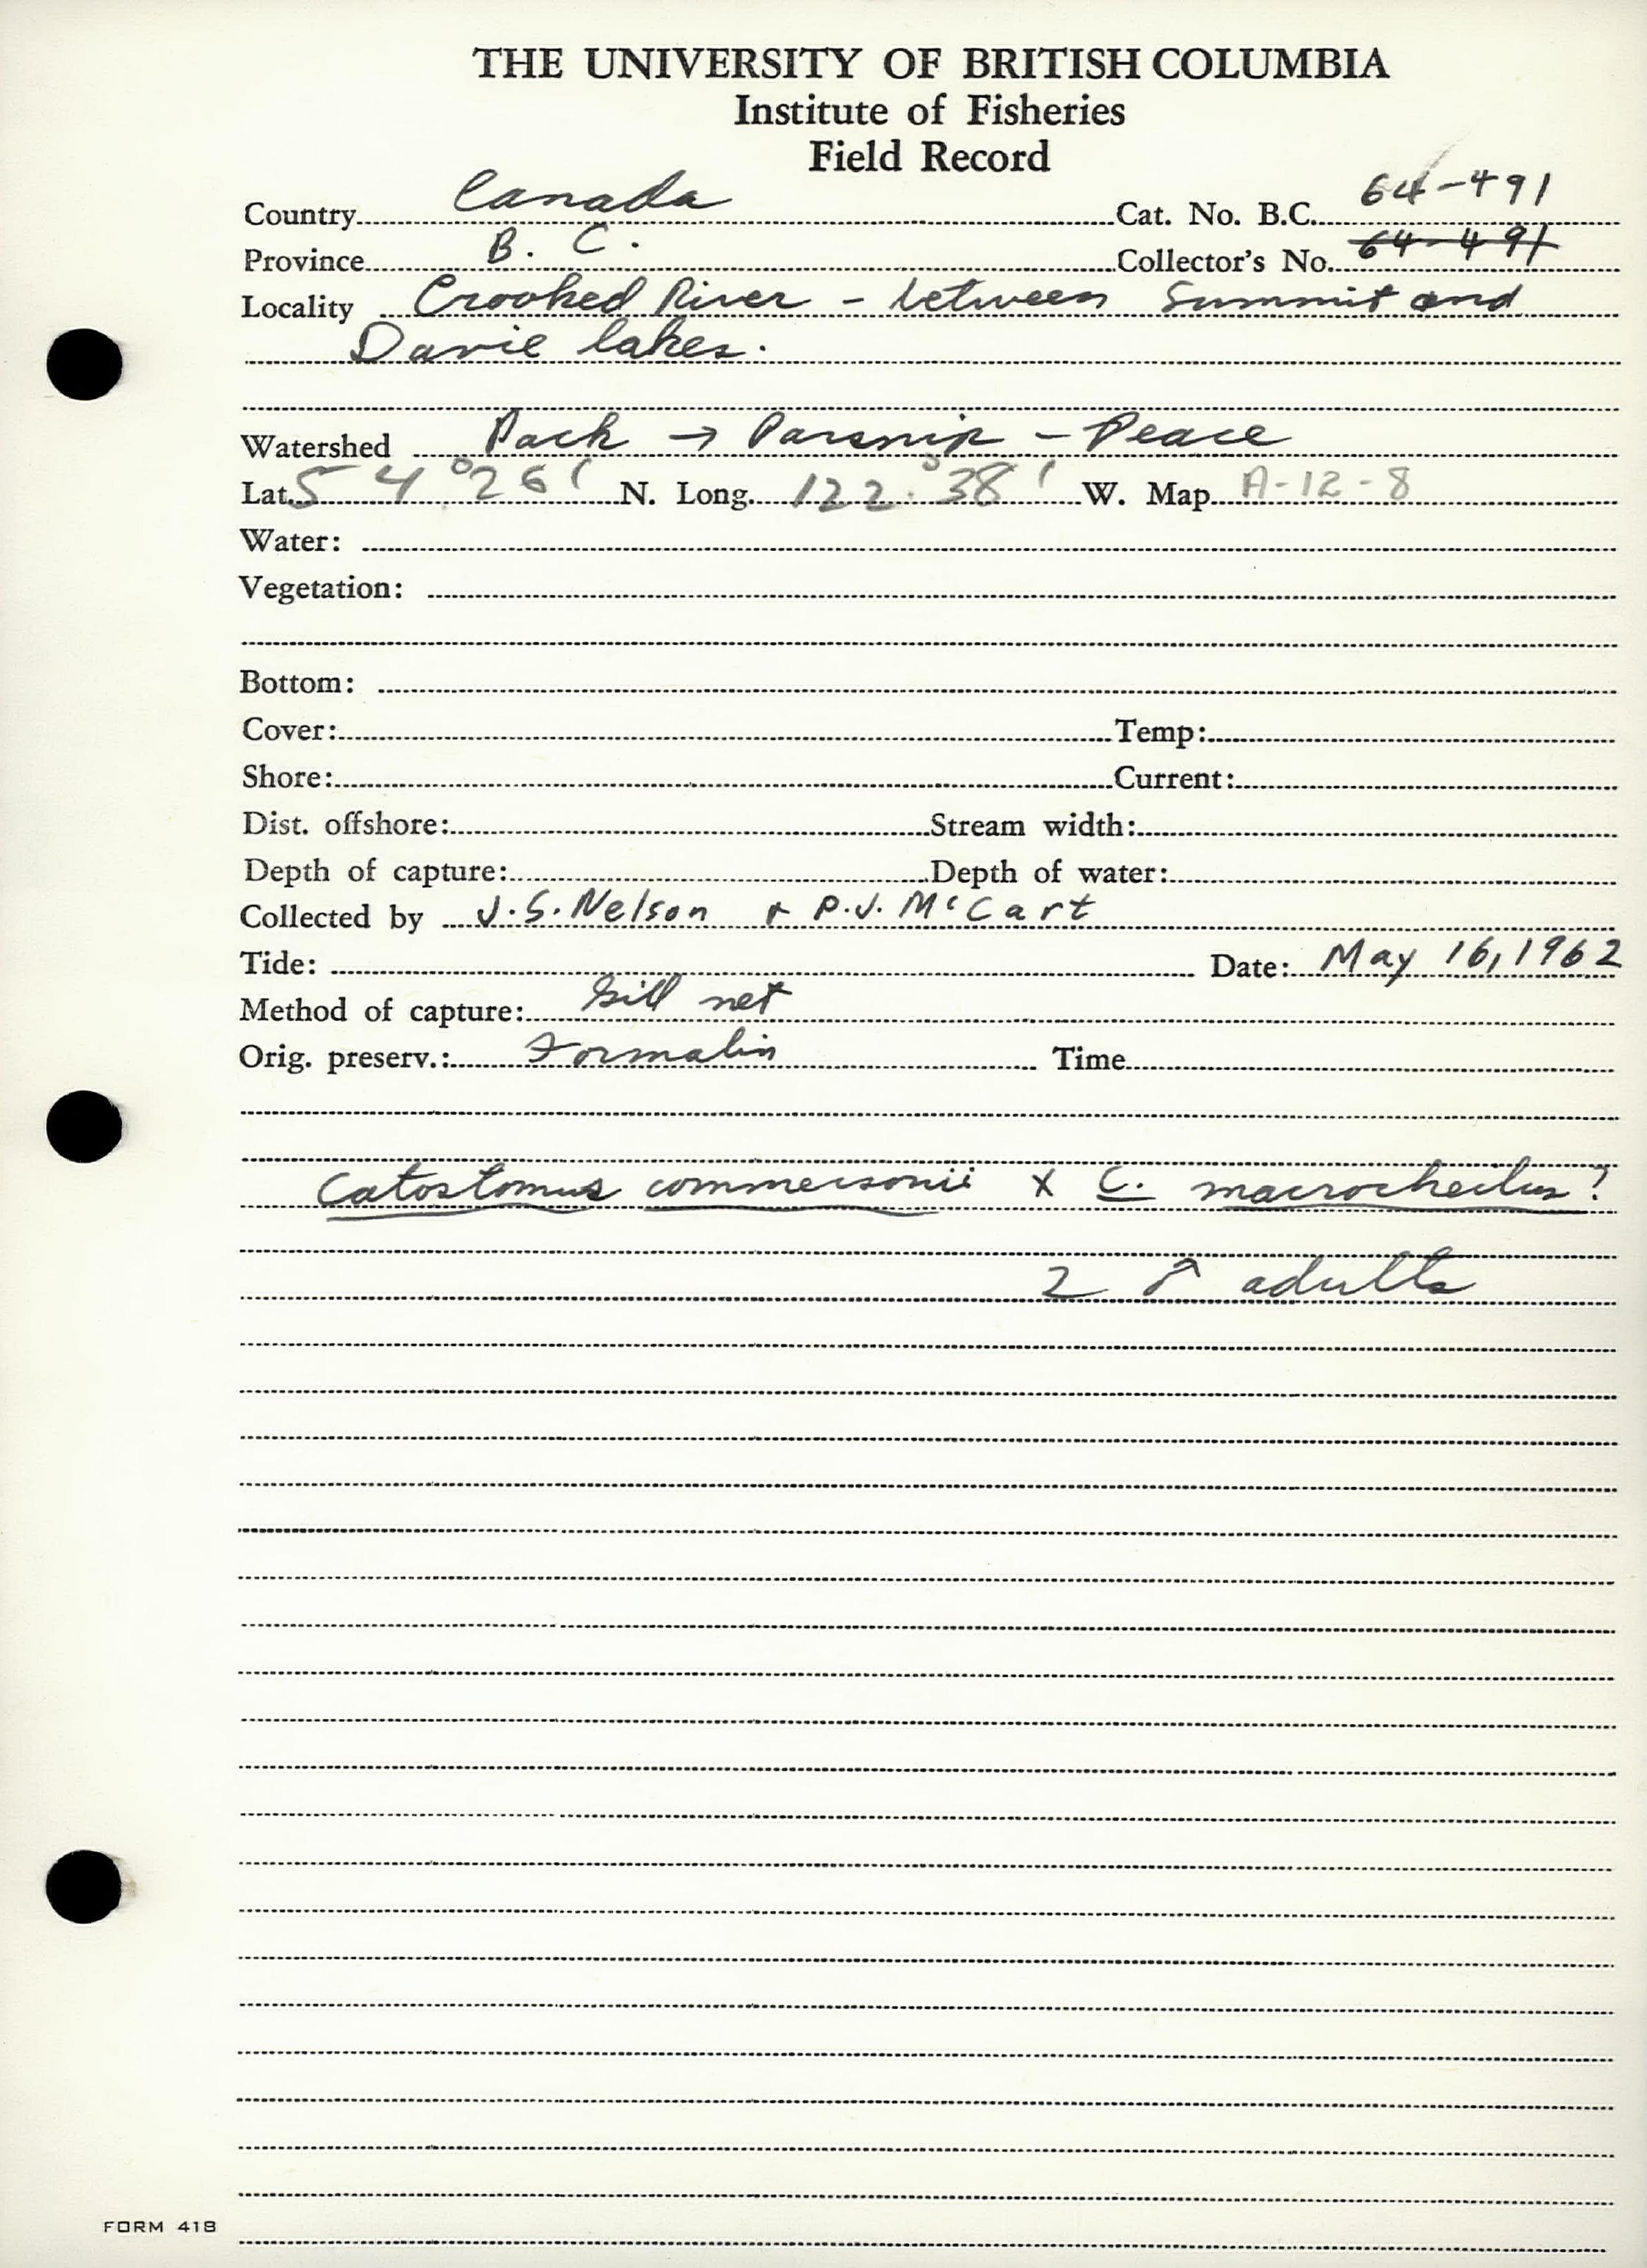 THE UNIVERSITY OF BRITISH COLUMBIA
Institute of Fisheries
Field Record
Country Canada Cat. No. B.C. 64-491
Province B. C. Collector's No. 64-491
Locality Crooked River - between Summit and
Davie lakes.
Watershed Pack → Parsnip - Peace
Lat. 54°26' N. Long. 122°38' W. Map A-12-8
Water:
Vegetation:
Bottom:
Cover: Temp:
Shore: Current:
Dist. offshore: Stream width:
Depth of capture: Depth of water:
Collected by J.S. Nelson + P.J. McCart
Tide: Date: May 16, 1962
Method of capture: Gill net
Orig. preserv.: Formalin Time
Catostomus commersonii X C. macrocheilus?
2 adults
FORM 41B